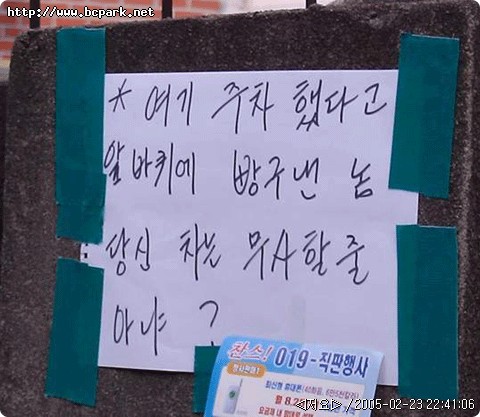 http://www.bcpark.net
* 여기 주차 했다고
앞바퀴에 빵구낸 놈
당신 차는 무사할 줄
아냐 ?
찬스! 019-직판행사
최신형 휴대폰(40화음,
/2005-02-23 22:41:06